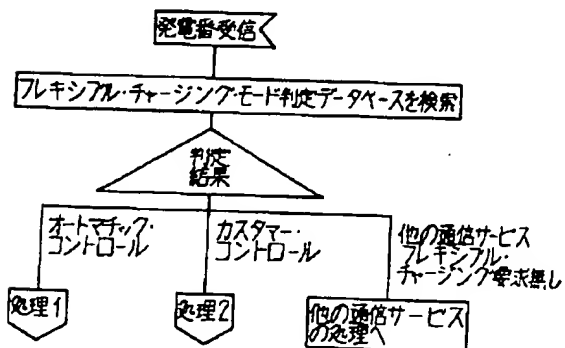 発電番受信
フレキシブル・チャージング・モード判定データベースを検索
判定
結果
オートマチック・
コントロール
カスタマー・
コントロール
他の通信サービス
フレキシブル・
チャージング要求無し
処理1
処理2
他の通信サービス
の処理へ